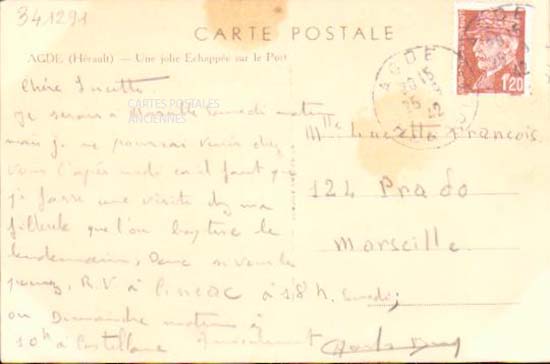 341291
CARTE POSTALE
AGDE (Hérault) — Une jolie Echappée sur le Port
Chère Lucette
CARTES POSTALES
ANCIENNES
je serai à Marseille samedi matin
mais je ne pourrai venir chez
vous l'après midi car il faut que
je fasse une visite chez ma
filleule que l'on baptise le
lendemain. Donc si vous le
pouvez, R.V à CINEAC à 18h. Samedi;
ou Dimanche matin à
10h à Castellane Amicalement
Mlle Lucette Francois
124 Prado
Marseille
AGDE
15
25
42
1.20